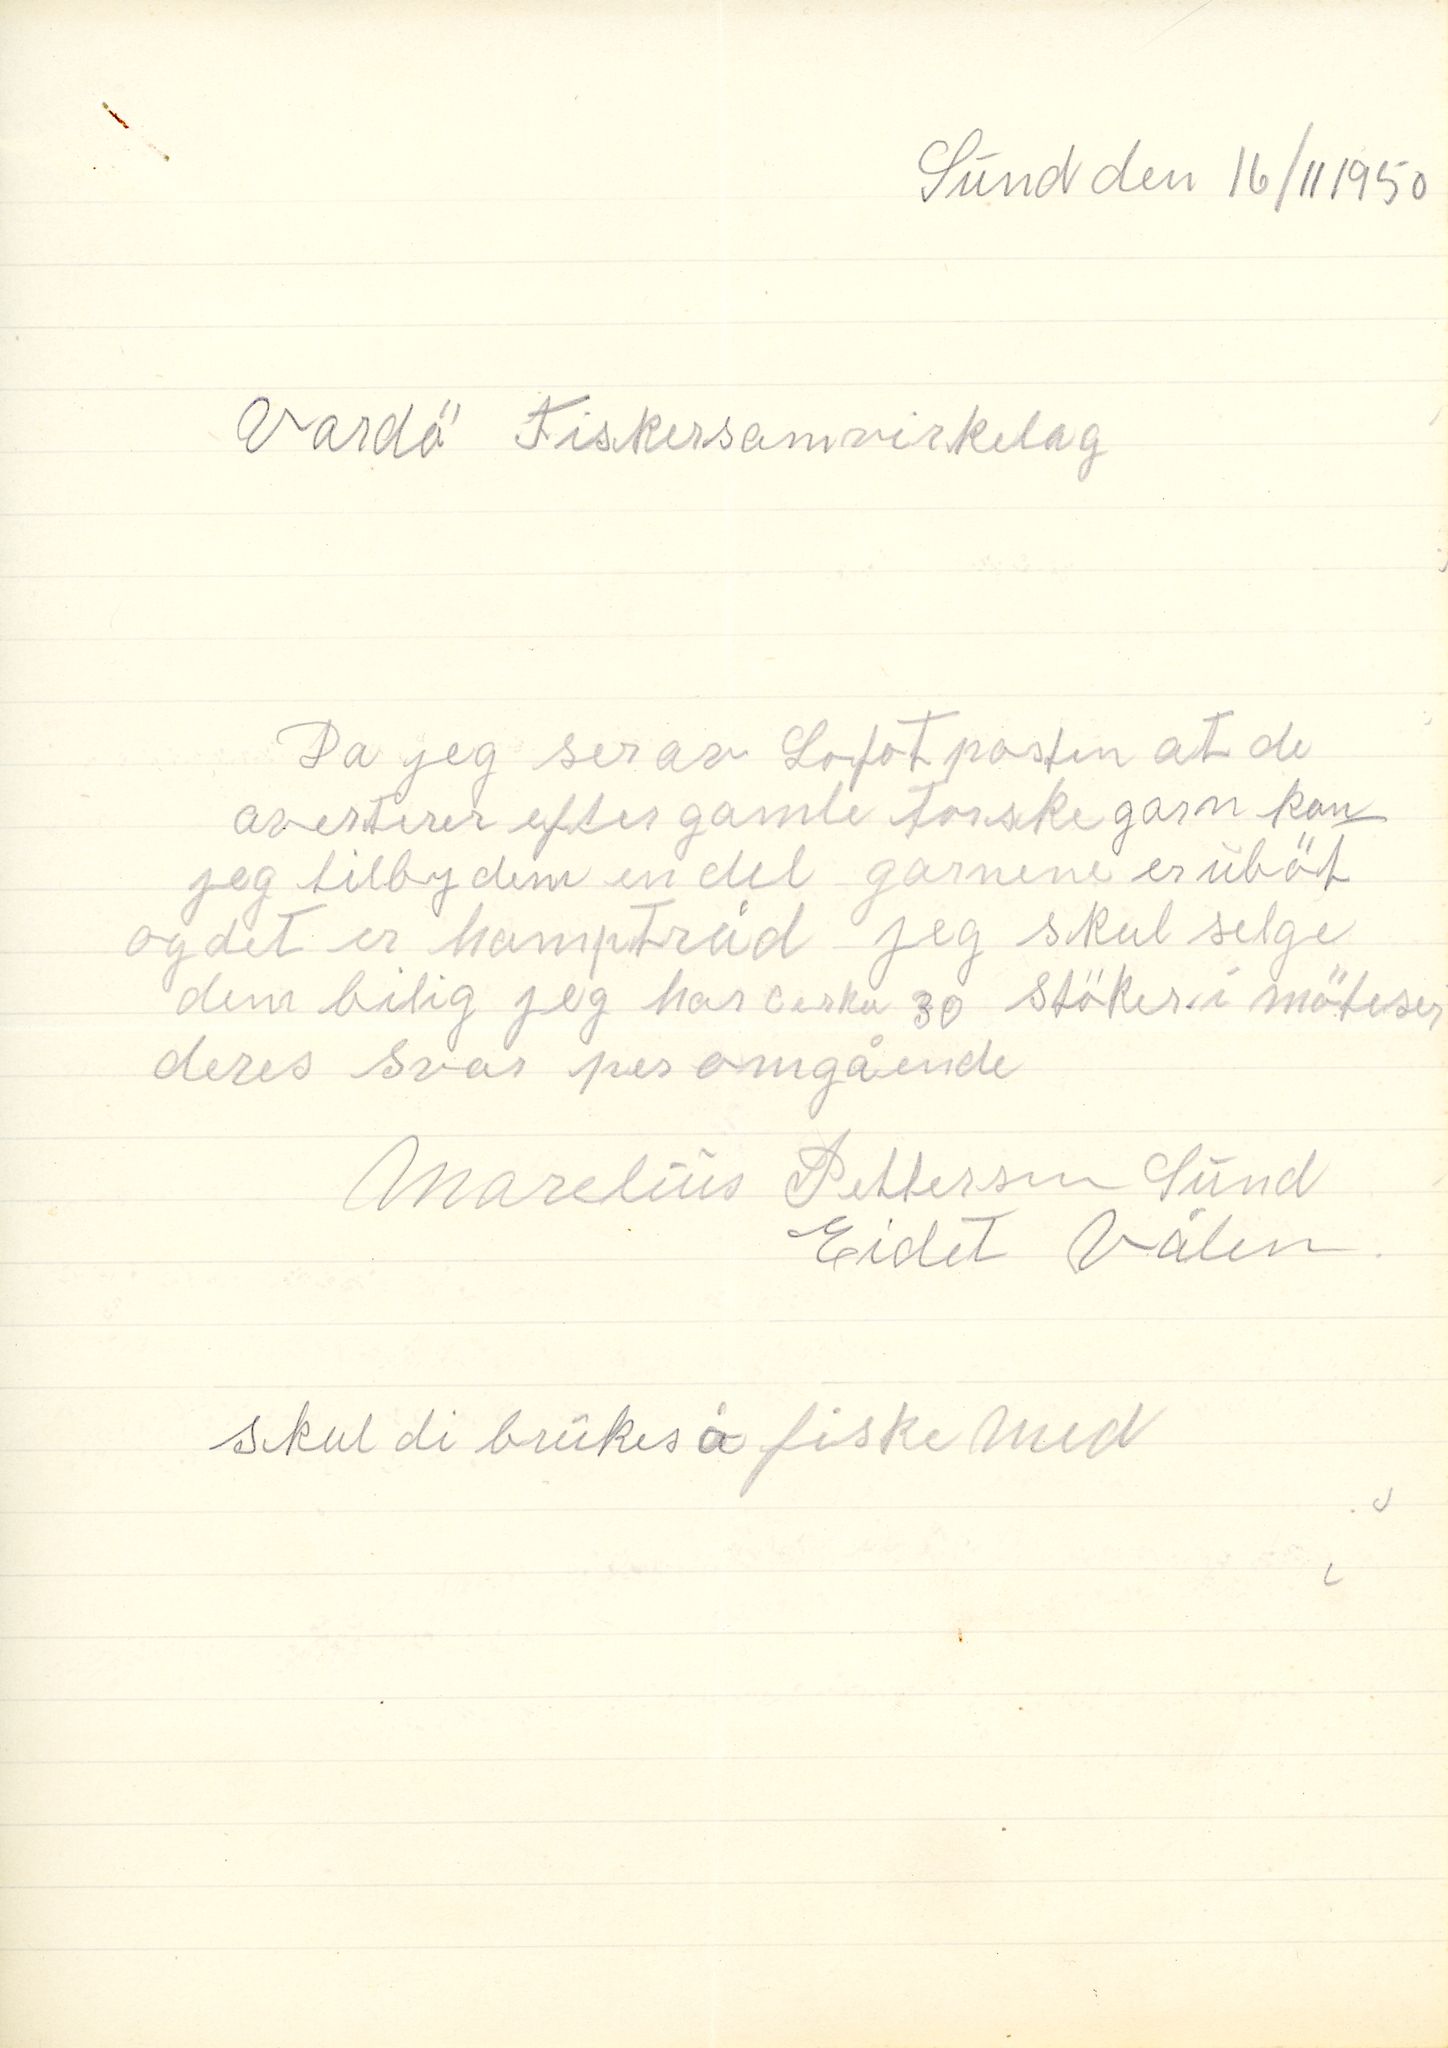 Sund den 16/11 1950
Vardö Fiskersamvirkelag
Da jeg ser av Lofotposten at de
averterer efter gamle torskegarn kan
jeg tilby dem en del garnene er uböt
og det er hamptråd jeg skul selge
dem bilig jeg har cerka 30 stöker i möteser
deres svar per omgående
Marelius Pettersen Sund
Eidet Vålen
skul di brukes å fiske med